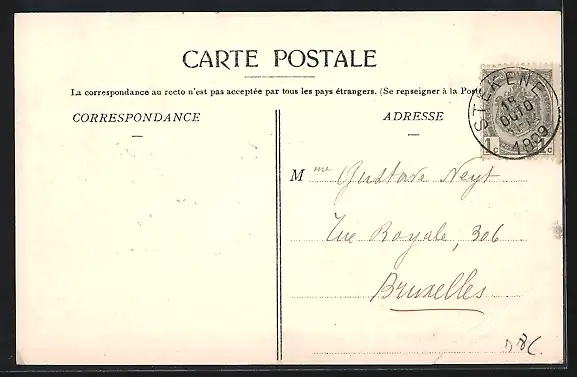 CARTE POSTALE
La correspondance au recto n'est pas acceptée par tous les pays étrangers. (Se renseigner à la Poste
CORRESPONDANCE
ADRESSE
STEKENE
18
1909
1 c
c
Mme Gustave Neyt
Rue Royale, 306
Bruxelles